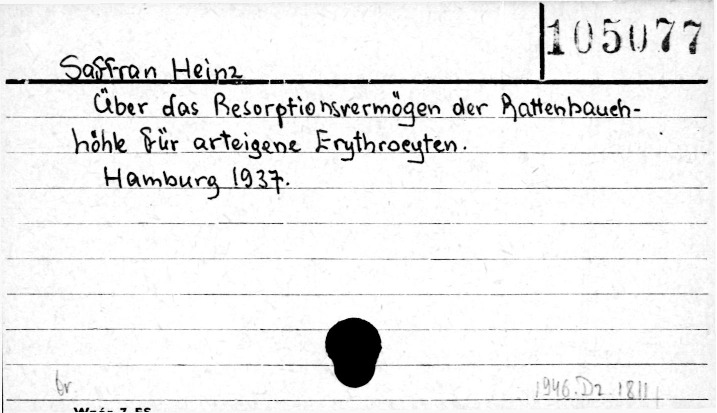 105077
Saffran Heinz
Über das Resorptionsvermögen der Rattenbauch-
höhle für arteigene Erythrocyten.
Hamburg 1937.
br.
1946.Dz.1811